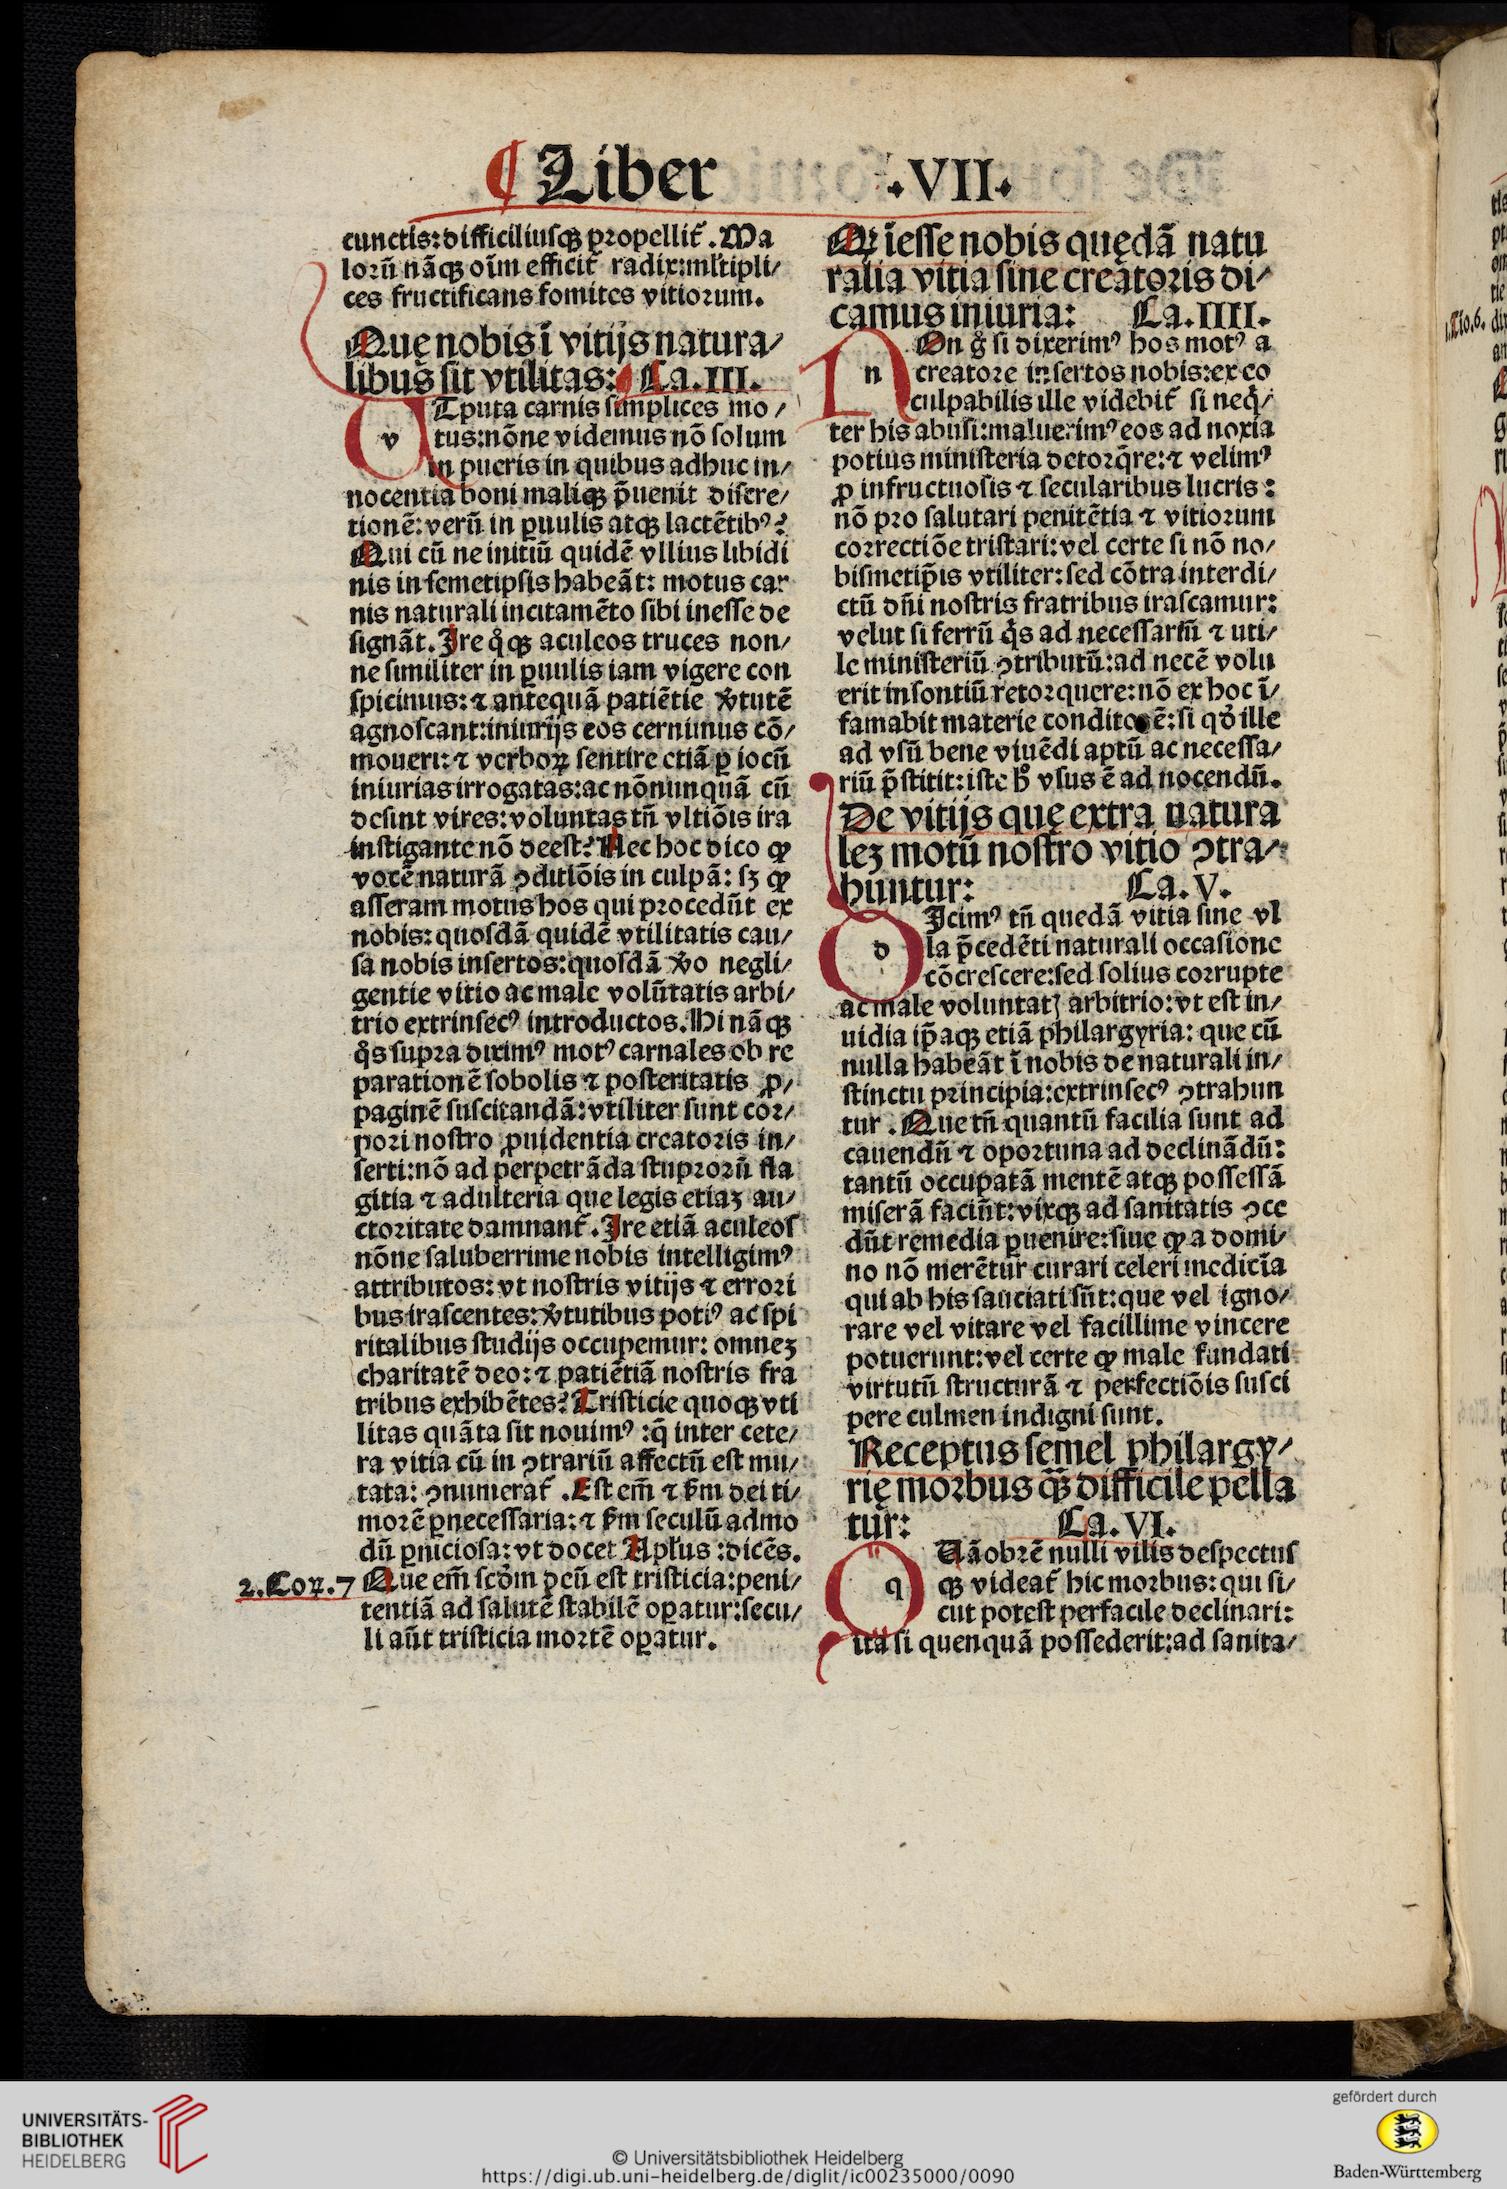 ¶ Liber .VII.
cunctis: difficiliusqꝫ propellit᷑. Ma
lorū nãqꝫ oı̄m efficit᷑ radix: ml̃tipli⸗
ces fructificans fomites vitiorum.
Que nobis ĩ vitijs natura⸗
libus sit vtilitas: Ca.III.
v Tputa carnis simplices mo⸗
tus: nõne videmus nõ solum
in pueris in quibus adhuc in⸗
nocentia boni maliqꝫ p̃uenit discre⸗
tionẽ: verũ in ꝑuulis atqꝫ lactẽtibꝰ?
Qui cũ ne initiũ quidẽ vllius libidi
nis in semetipsis habeãt: motus car
nis naturali incitamẽto sibi inesse de
signãt. Ire qͦqꝫ aculeos truces non⸗
ne similiter in ꝑuulis iam vigere con
spicimus: ⁊ antequã patiẽtie v̾tutẽ
agnoscant: iniurijs eos cernimus cõ⸗
moueri: ⁊ verboꝝ sentire etiã ꝑ iocũ
iniurias irrogatas: ac nõnunquã cũ
desint vires: voluntas tñ vltiõis ira
instigante nõ deest? Nec hoc dico ꝙ
vocẽ naturã ꝯditiõis in culpã: sꝫ ꝙ
asseram motus hos qui procedũt ex
nobis: quosdã quidẽ vtilitatis cau⸗
sa nobis insertos: quosdã v̾o negli⸗
gentie vitio ac male volũtatis arbi⸗
trio extrinsecꝰ introductos. Hi nãqꝫ
qͦs supra diximꝰ motꝰ carnales ob re
parationẽ sobolis ⁊ posteritatis ꝓ⸗
paginẽ suscitandã: vtiliter sunt cor⸗
pori nostro ꝓuidentia creatoris in⸗
serti: nõ ad perpetrãda stuprorũ fla
gitia ⁊ adulteria que legis etiaꝫ au⸗
ctoritate damnant᷑. Ire etiã aculeos
nõne saluberrime nobis intelligimꝰ
attributos: vt nostris vitijs ⁊ errori
bus irascentes: v̾tutibus potiꝰ ac spi
ritalibus studijs occupemur: omneꝫ
charitatẽ deo: ⁊ patiẽtiã nostris fra
tribus exhibẽtes? Tristicie quoqꝫ vti
litas quãta sit nouimꝰ: q̃ inter cete⸗
ra vitia cũ in ꝯtrariũ affectũ est mu⸗
tata: ꝯnumerat᷑. Est em̃ ⁊ ẜm dei ti⸗
morẽ ꝑnecessaria: ⁊ ẜm seculũ admo
dũ ꝑniciosa: vt docet Apl̃us: dicẽs.
2.Coꝝ.7 Que em̃ scd̾m deũ est tristicia: peni⸗
tentiã ad salutẽ stabilẽ oꝑatur: secu⸗
li aũt tristicia mortẽ oꝑatur.
Qꝛ ĩesse nobis quędã natu
ralia vitia sine creatoris di⸗
camus iniuria: Ca.IIII.
n On gͦ si dixerimꝰ hos motꝰ a
creatore insertos nobis: ex eo
culpabilis ille videbit᷑ si neqͥ⸗
ter his abusi: maluerimꝰ eos ad noxia
potius ministeria detorq̃re: ⁊ velimꝰ
ꝓ infructuosis ⁊ secularibus lucris:
nõ pro salutari penitẽtia ⁊ vitiorum
correctiõe tristari: vel certe si nõ no⸗
bismetip̃is vtiliter: sed cõtra interdi⸗
ctũ dñi nostris fratribus irascamur:
velut si ferrũ qͥs ad necessariũ ⁊ uti⸗
le ministeriũ ꝯtributũ: ad necẽ volu
erit insontiũ retorquere: nõ ex hoc ĩ⸗
famabit materie conditorẽ: si qd̾ ille
ad vsũ bene viuẽdi aptũ ac necessa⸗
riũ p̃stitit: iste hͦ vsus ẽ ad nocendũ.
De vitijs quę extra natura
leꝫ motũ nostro vitio ꝯtra⸗
huntur: Ca.V.
d Icimꝰ tñ quedã vitia sine vl
la p̃cedẽti naturali occasione
cõcrescere: sed solius corrupte
ac male voluntatꝭ arbitrio: vt est in⸗
uidia ip̃aqꝫ etiã philargyria: que cũ
nulla habeãt ĩ nobis de naturali in⸗
stinctu principia: extrinsecꝰ ꝯtrahun
tur. Que tñ quantũ facilia sunt ad
cauendũ ⁊ oportuna ad declinãdũ:
tantũ occupatã mentẽ atqꝫ possessã
miserã faciũt: vixqꝫ ad sanitatis ꝯce
dũt remedia ꝑuenire: siue ꝙ a domi⸗
no nõ merẽtur curari celeri medicĩa
qui ab his sauciati sũt: que vel igno⸗
rare vel vitare vel facillime vincere
potuerunt: vel certe ꝙ male fundati
virtutũ structurã ⁊ perfectiõis susci
pere culmen indigni sunt.
Receptus semel philargy⸗
rię morbus q̃ꝫ difficile pella
tur: Ca.VI.
q Uãobrẽ nulli vilis despectus
qꝫ videat᷑ hic morbus: qui si⸗
cut potest perfacile declinari:
ita si quenquã possederit: ad sanita⸗
UNIVERSITÄTS-
BIBLIOTHEK
HEIDELBERG
© Universitätsbibliothek Heidelberg
https://digi.ub.uni-heidelberg.de/diglit/ic00235000/0090
gefördert durch
Baden-Württemberg